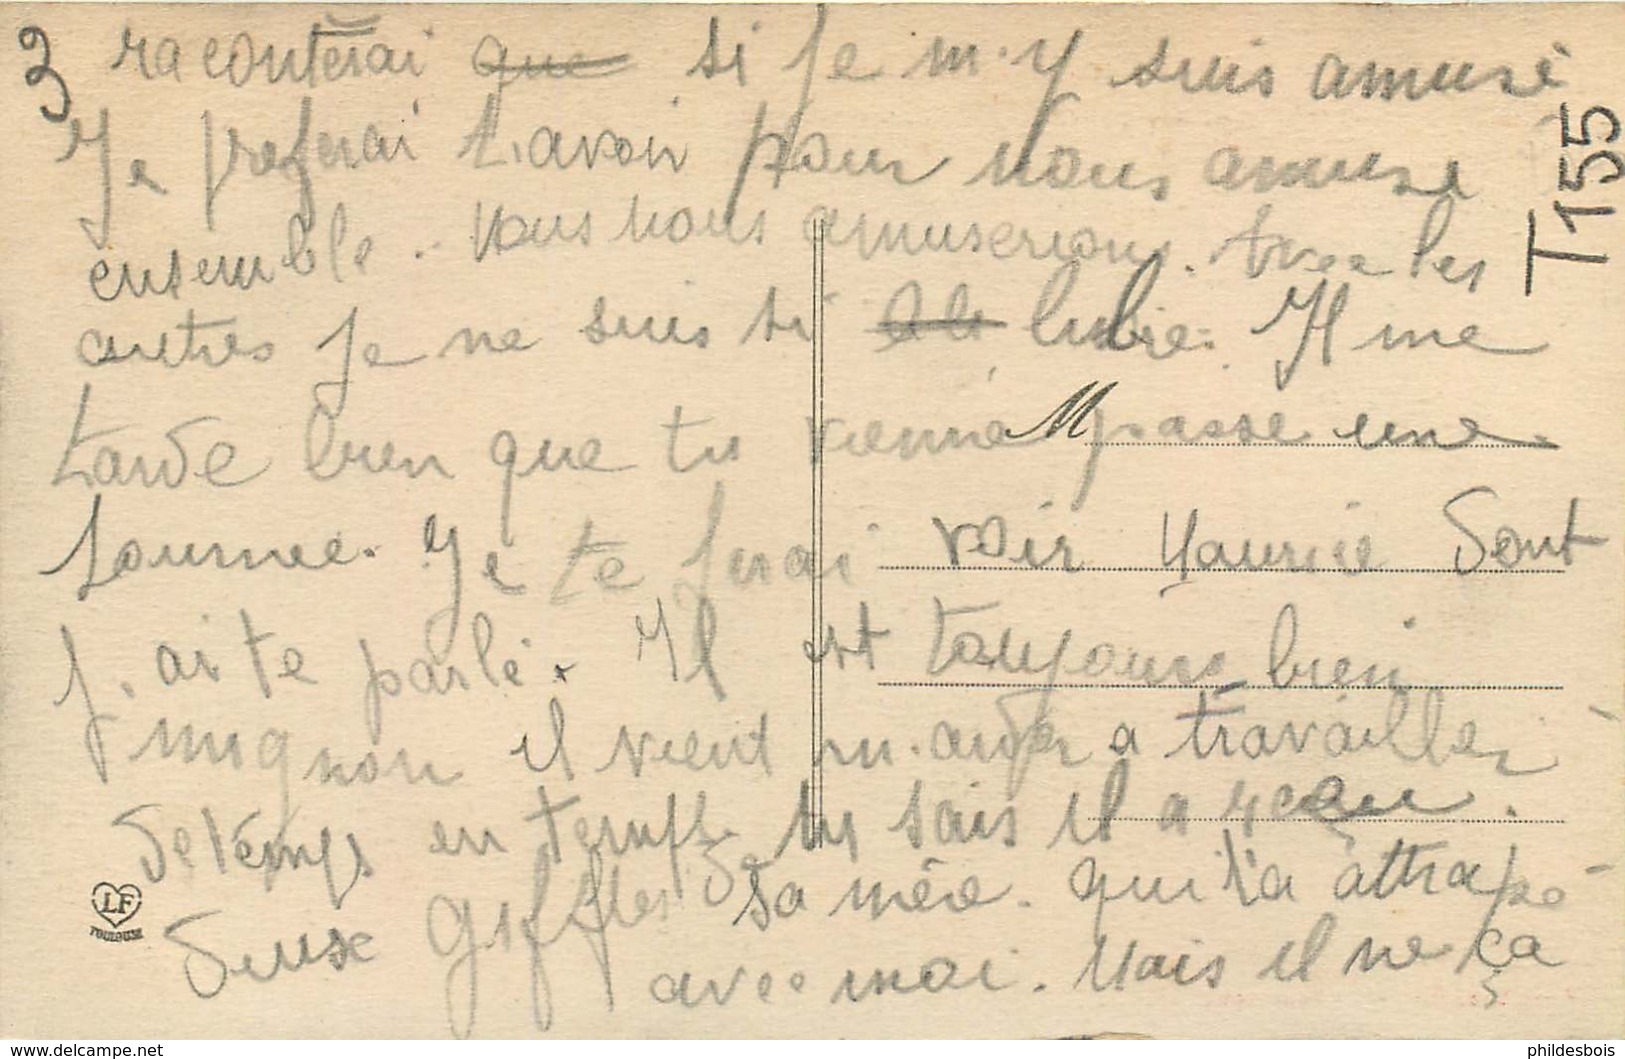 3
raconterai que si je m'y suis amusé
Je preferai t.avoir pour nous amuse
ensemble. Nous nous amuserions. Avec les
autres je ne suis si libre. Il me
tarde bien que tu vienne passe une
M
journee. Je te ferai voir Maurice dont
j.ai te parlé. Il est toujours bien
mignon il vient m.aider a travailler
de temps en temps. tu sais il a reçu
deux giffles de sa mère. qui l'a attrapé
avec moi. Mais il ne ça
T155
LF
TOULOUSE
www.delcampe.net
phildesbois